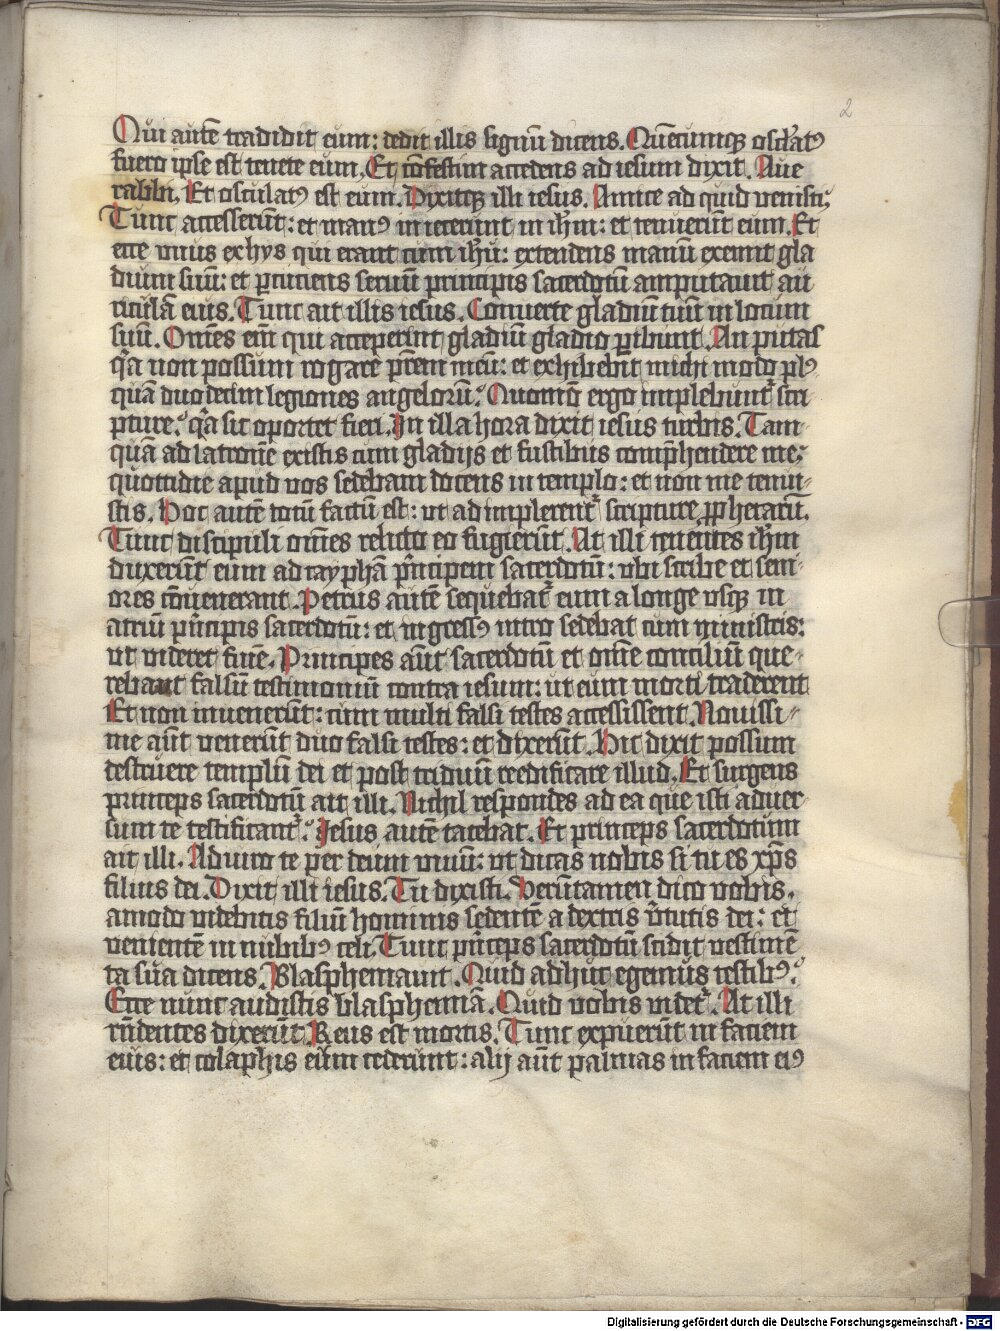 2
Qui autē tradidit eum: dedit illis signū dicens. Quēcumqꝫ oscl̓atꝰ
fuero ipse est tenete eum. Et cōfestim accedens ad iesum dixit. Aue
rabbi. Et osculatꝰ est eum. Dixitqꝫ illi iesus. Amice ad quid venisti;
Tunc accesserūt: et manꝰ iniecerunt in ih̄m: et tenuerūt eum. Et
ecce vnus exhys qui erant cum ih̄u: extendens manū exemit gla
dium suū: et ꝑcuciens seruū principis sacerdotū amputauit au
riculā eius. Tunc ait illis iesus. Conuerte gladiū tuū in locum
suū. Om̄es em̄ qui acceperint gladiū gladio ꝑibunt. An putas
qr̄a non possum rogare pr̄em meū: et exhibebit michi modo plꝰ
quā duodecim legiones angelorū? Quomō ergo implebunt᷑ scri
pture? qr̄a sic oportet fieri. In illa hora dixit iesus turbis. Tam
quā ad latronē existis cum gladijs et fustibus comp̄hendere me;
quottidie apud vos sedebam docens in templo: et non me tenui
stis. Hoc autē totū factū est: vt adimplerent᷑ scripture ꝓphetarū.
Tunc discipuli om̄es relicto eo fugierūt. At illi tenentes ih̄m
duxerūt eum ad cayphā p̄ncipem sacerdotū: vbi scribe et seni
ores cōuenerant. Petrus autē sequebat᷑ eum a longe vsqꝫ in
atriū pn̄cipis sacerdotū: et ingressꝰ intro sedebat cum ministris:
vt videret finē. Principes aūt sacerdotū et om̄e conciliū que
rebant falsū testimoniū contra iesum: ut eum morti traderent
Et non inuenerūt: cum multi falsi testes accessissent. Nouissi
me aūt venerūt duo falsi testes: et dixerūt. Hic dixit possum
destruere templū dei et post triduū reedificare illud. Et surgens
princeps sacerdotū ait illi. Nichil respondes ad ea que isti aduer
sum te testificant᷑? Jesus autē tacebat. Et princeps sacerdotum
ait illi. Adiuro te per deum viuū: vt dicas nobis si tu es xp̄s
filius dei. Dixit illi iesus. Tu dixisti. Verūtamen dico vobis.
amodo videbitis filiū hominis sedentē a dextris v̓tutis dei: et
venientē in nubibꝰ celi. Tunc pn̄ceps sacerdotū scidit vestimē
ta sua dicens. Blasphemauit. Quid adhuc egemus testibꝰ?
Ecce nunc audistis blasphemiā. Quid vobis videt᷑. At illi
rn̄dentes dixerūt. Reus est mortis. Tunc expuerūt in faciem
eius: et colaphis eūm cederunt: alij aūt palmas in faciem eiꝰ
Digitalisierung gefördert durch die Deutsche Forschungsgemeinschaft - DFG